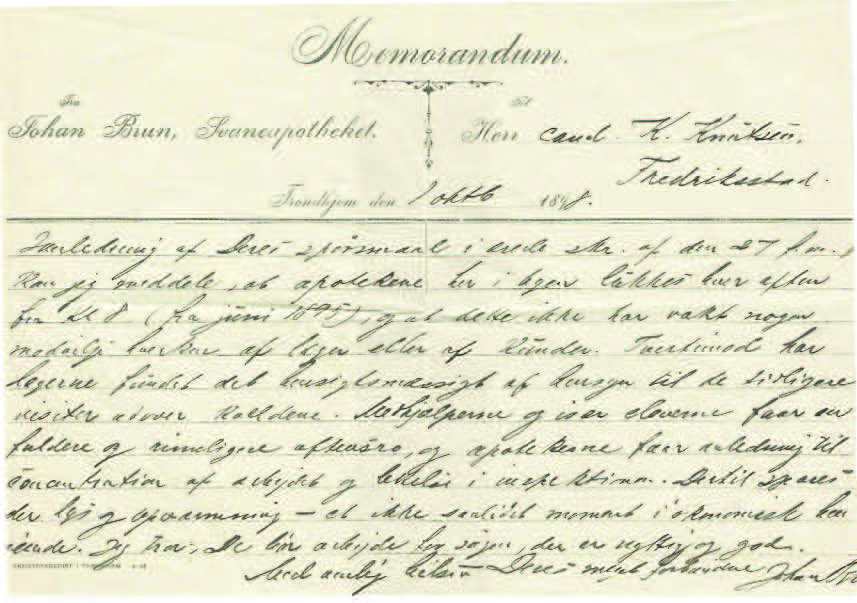 Memorandum.
Fra
Til
Johan Brun, Svaneapotheket.
Herr cand. K. Knutsen,
Fredriksstad.
Trondhjem den 1 oktb 1898.
Anledning af Deres spörsmaal i ærede skr. af den 27 f.m.,
kan jeg meddele, at apotekene her i byen lukkes hver aften
fra kl 8 (fra juni 1895), og at dette ikke har vakt nogen
modvilje hverken af læger eller af kunder. Tvertimod har
lægerne fundet det hensigtsmæssigt af hensyn til de tidligere
visiter udover kveldene. Medhjælperne og især eleverne faar en
fuldere og rimeligere aftenro, og apotekerne faar anledning til
concentration af arbejdet og inspektionen. Dertil spares
der lys og opvarmning – et ikke momant i ökonomisk hen
seende. Jeg tror, De bör arbejde for sagen, der er nyttig og god.
Med venlig hilsen Deres forbundne Johan